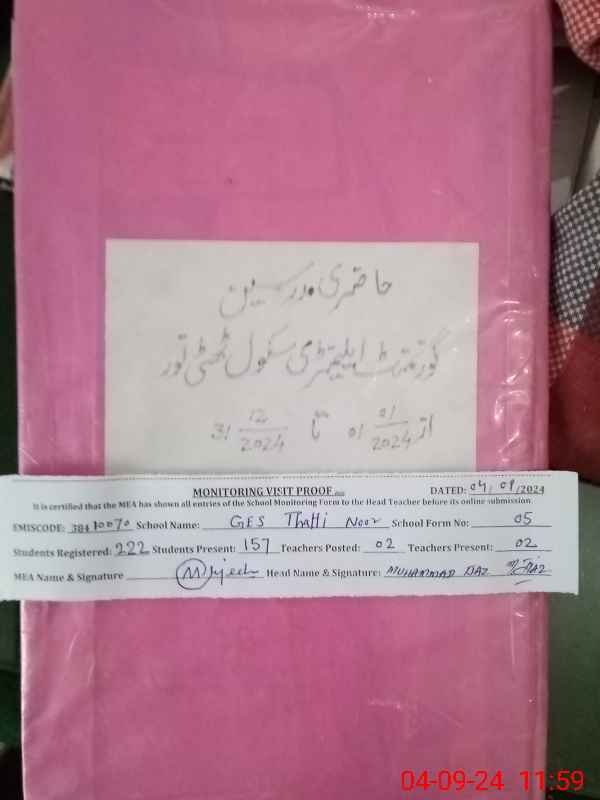 حاضری مدرسین
گورنمنٹ ایلیمنٹری سکول ٹھٹی نور
از 01 01/2024 تا 31 12/2024
MONITORING VISIT PROOF
DATED: 04/09/2024
It is certified that the MEA has shown all entries of the School Monitoring Form to the Head Teacher before its online submission.
EMISCODE: 38410070 School Name: GES Thatti Noor School Form No: 05
Students Registered: 222 Students Present: 157 Teachers Posted: 02 Teachers Present: 02
MEA Name & Signature Head Name & Signature: MUHAMMAD IJAZ
04-09-24 11:59